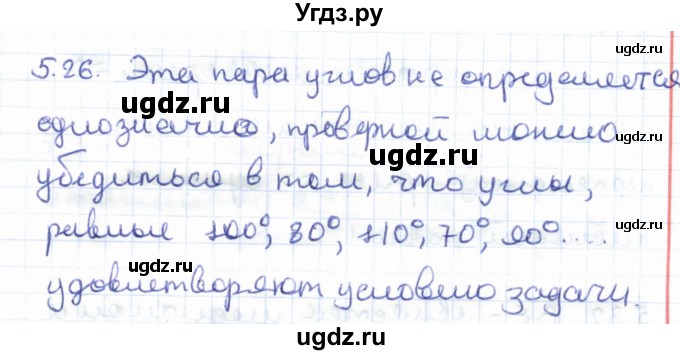 Угдз.ру
5.26. Эта пара углов не определяется
однозначно, проверкой можно
убедиться в том, что углы,
равные 100°, 80°, 110°, 70°, 90°....
удовлетворяют условию задачи.
ugdz.ru
ugdz.ru
ugdz.ru
ugdz.ru
ugdz.ru
ugdz.ru
ugdz.ru
ugdz.ru
Угдз.ру